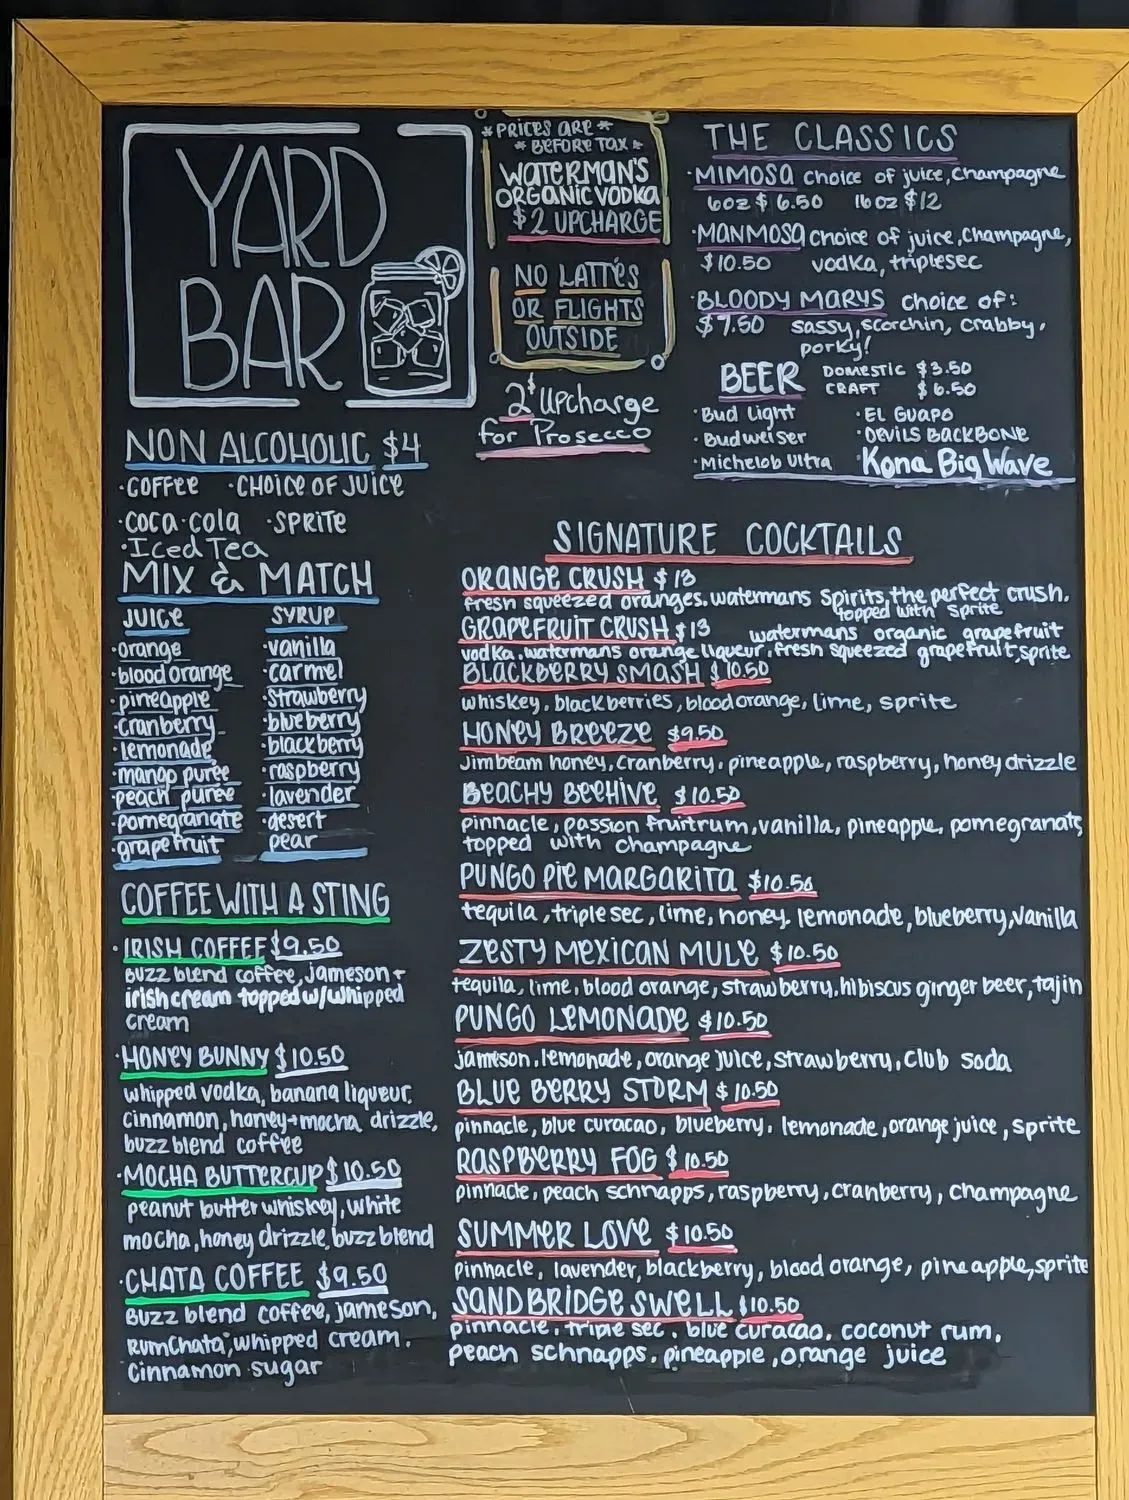 YARD
BAR
*PRICES ARE*
*BEFORE TAX*
WATERMAN'S
ORGANIC VODKA
$2 UPCHARGE
NO LATTÉS
OR FLIGHTS
OUTSIDE
2$ Upcharge
for Prosecco
THE CLASSICS
·MIMOSA choice of juice, champagne
6oz $6.50 16oz $12
·MANMOSA choice of juice, champagne,
$10.50 vodka, triplesec
·BLOODY MARYS choice of:
$7.50 sassy, scorchin, crabby,
porky!
BEER DOMESTIC $3.50
CRAFT $6.50
·Bud Light ·EL GUAPO
·Budweiser ·DEVILS BACKBONE
·Michelob Ultra ·Kona Big Wave
NON ALCOHOLIC $4
·COFFEE ·CHOICE OF JUICE
·COCA-COLA ·SPRITE
·Iced Tea
MIX & MATCH
JUICE SYRUP
·orange ·vanilla
·blood orange ·carmel
·pineapple ·strawberry
·cranberry ·blueberry
·lemonade ·blackberry
·mango purée ·raspberry
·peach purée ·lavender
·pomegranate ·desert
·grapefruit pear
COFFEE WITH A STING
·IRISH COFFEE $9.50
buzz blend coffee, jameson +
irish cream topped w/whipped
cream
·HONEY BUNNY $10.50
whipped vodka, banana liqueur,
cinnamon, honey+mocha drizzle,
buzz blend coffee
·MOCHA BUTTERCUP $10.50
peanut butter whiskey, white
mocha, honey drizzle, buzz blend
·CHATA COFFEE $9.50
Buzz blend coffee, jameson,
RumChata, whipped cream,
cinnamon sugar
SIGNATURE COCKTAILS
ORANGE CRUSH $13
fresh squeezed oranges, watermans spirits, the perfect crush,
topped with sprite
GRAPEFRUIT CRUSH $13 watermans organic grapefruit
vodka, watermans orange liqueur, fresh squeezed grapefruit, sprite
BLACKBERRY SMASH $10.50
whiskey, blackberries, blood orange, lime, sprite
HONEY BREEZE $9.50
Jimbeam honey, cranberry, pineapple, raspberry, honey drizzle
BEACHY BEEHIVE $10.50
pinnacle, passion fruit rum, vanilla, pineapple, pomegranate
topped with champagne
PUNGO PIE MARGARITA $10.50
tequila, triple sec, lime, honey, lemonade, blueberry, vanilla
ZESTY MEXICAN MULE $10.50
tequila, lime, blood orange, strawberry, hibiscus ginger beer, tajin
PUNGO LEMONADE $10.50
jameson, lemonade, orange juice, strawberry, club soda
BLUE BERRY STORM $10.50
pinnacle, blue curacao, blueberry, lemonade, orange juice, sprite
RASPBERRY FOG $10.50
pinnacle, peach schnapps, raspberry, cranberry, champagne
SUMMER LOVE $10.50
pinnacle, lavender, blackberry, blood orange, pineapple, sprite
SANDBRIDGE SWELL $10.50
pinnacle, triple sec, blue curacao, coconut rum,
peach schnapps, pineapple, orange juice